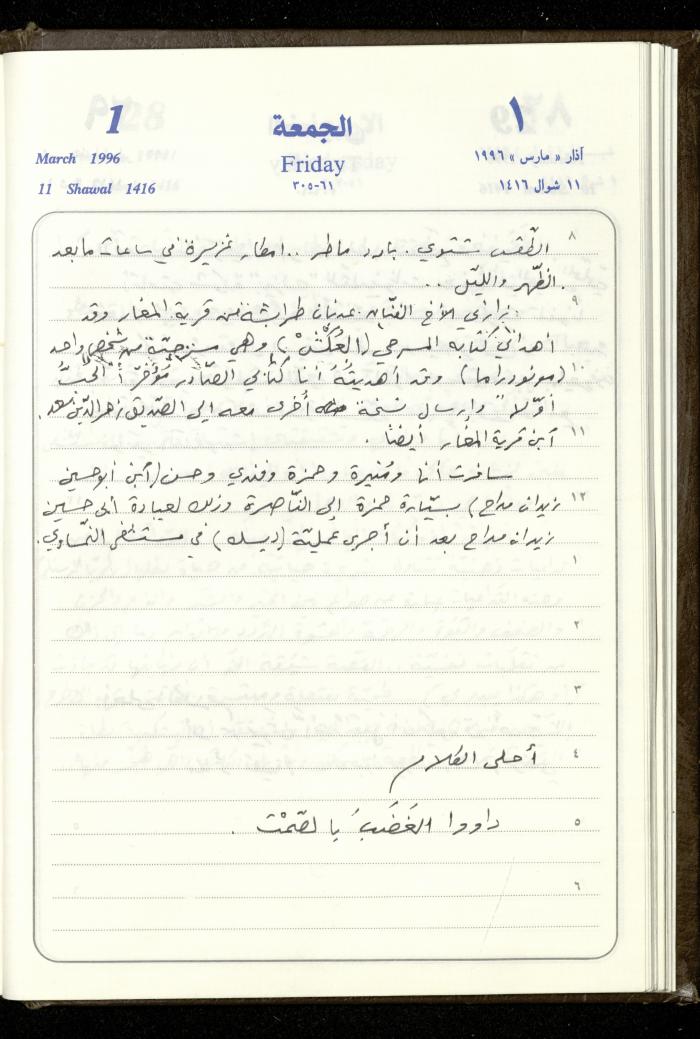 1
الجمعة
١
March 1996
Friday
آذار « مارس » ١٩٩٦
11 Shawal 1416
٣٠٥-٦١
١١ شوال ١٤١٦
٨ الطّقس شتوي . بارد ماطر .. امطار غزيرة في ساعات ما بعد
الظّهر والليّل ..
٩ زارني الأخ الفنّان عدنان طرابشة من قرية المغار وقد
أهداني كتابه المسرحي (العُكُّشْ) وهي مسرحيّة من شخص واحد
١٠ (مونودراما) وقد أهديتُهُ أنا كتابي الصّادر مُؤخّراً "الحبّ
أوّلا" وإرسال نسخة أخرى معه إلى الصّديق زهر الدّين سعد.
١١ ابن قرية المغار أيضًا .
سافرت أنا ومُنيرة وحمزة وفندي وحسن (ابن أبو حسين
١٢ زيدان مداح) بسيّارة حمزة إلى النّاصرة وذلك لعيادة أبي حسين
زيدان مداح بعد أن أجرى عمليّة (ديسك) في مستشفى النّمساوي.
١
٢
٣
٤ أحلى الكلام
٥ داووا الغَضَبَ بالصّمْت .
٦